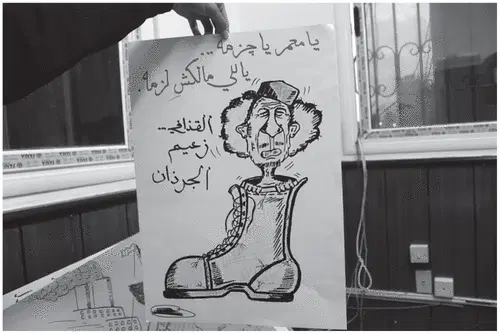 يا معمر يا جزمة...
ياللي مالكش لزمة.
القذافي..
زعيم
الجرذان